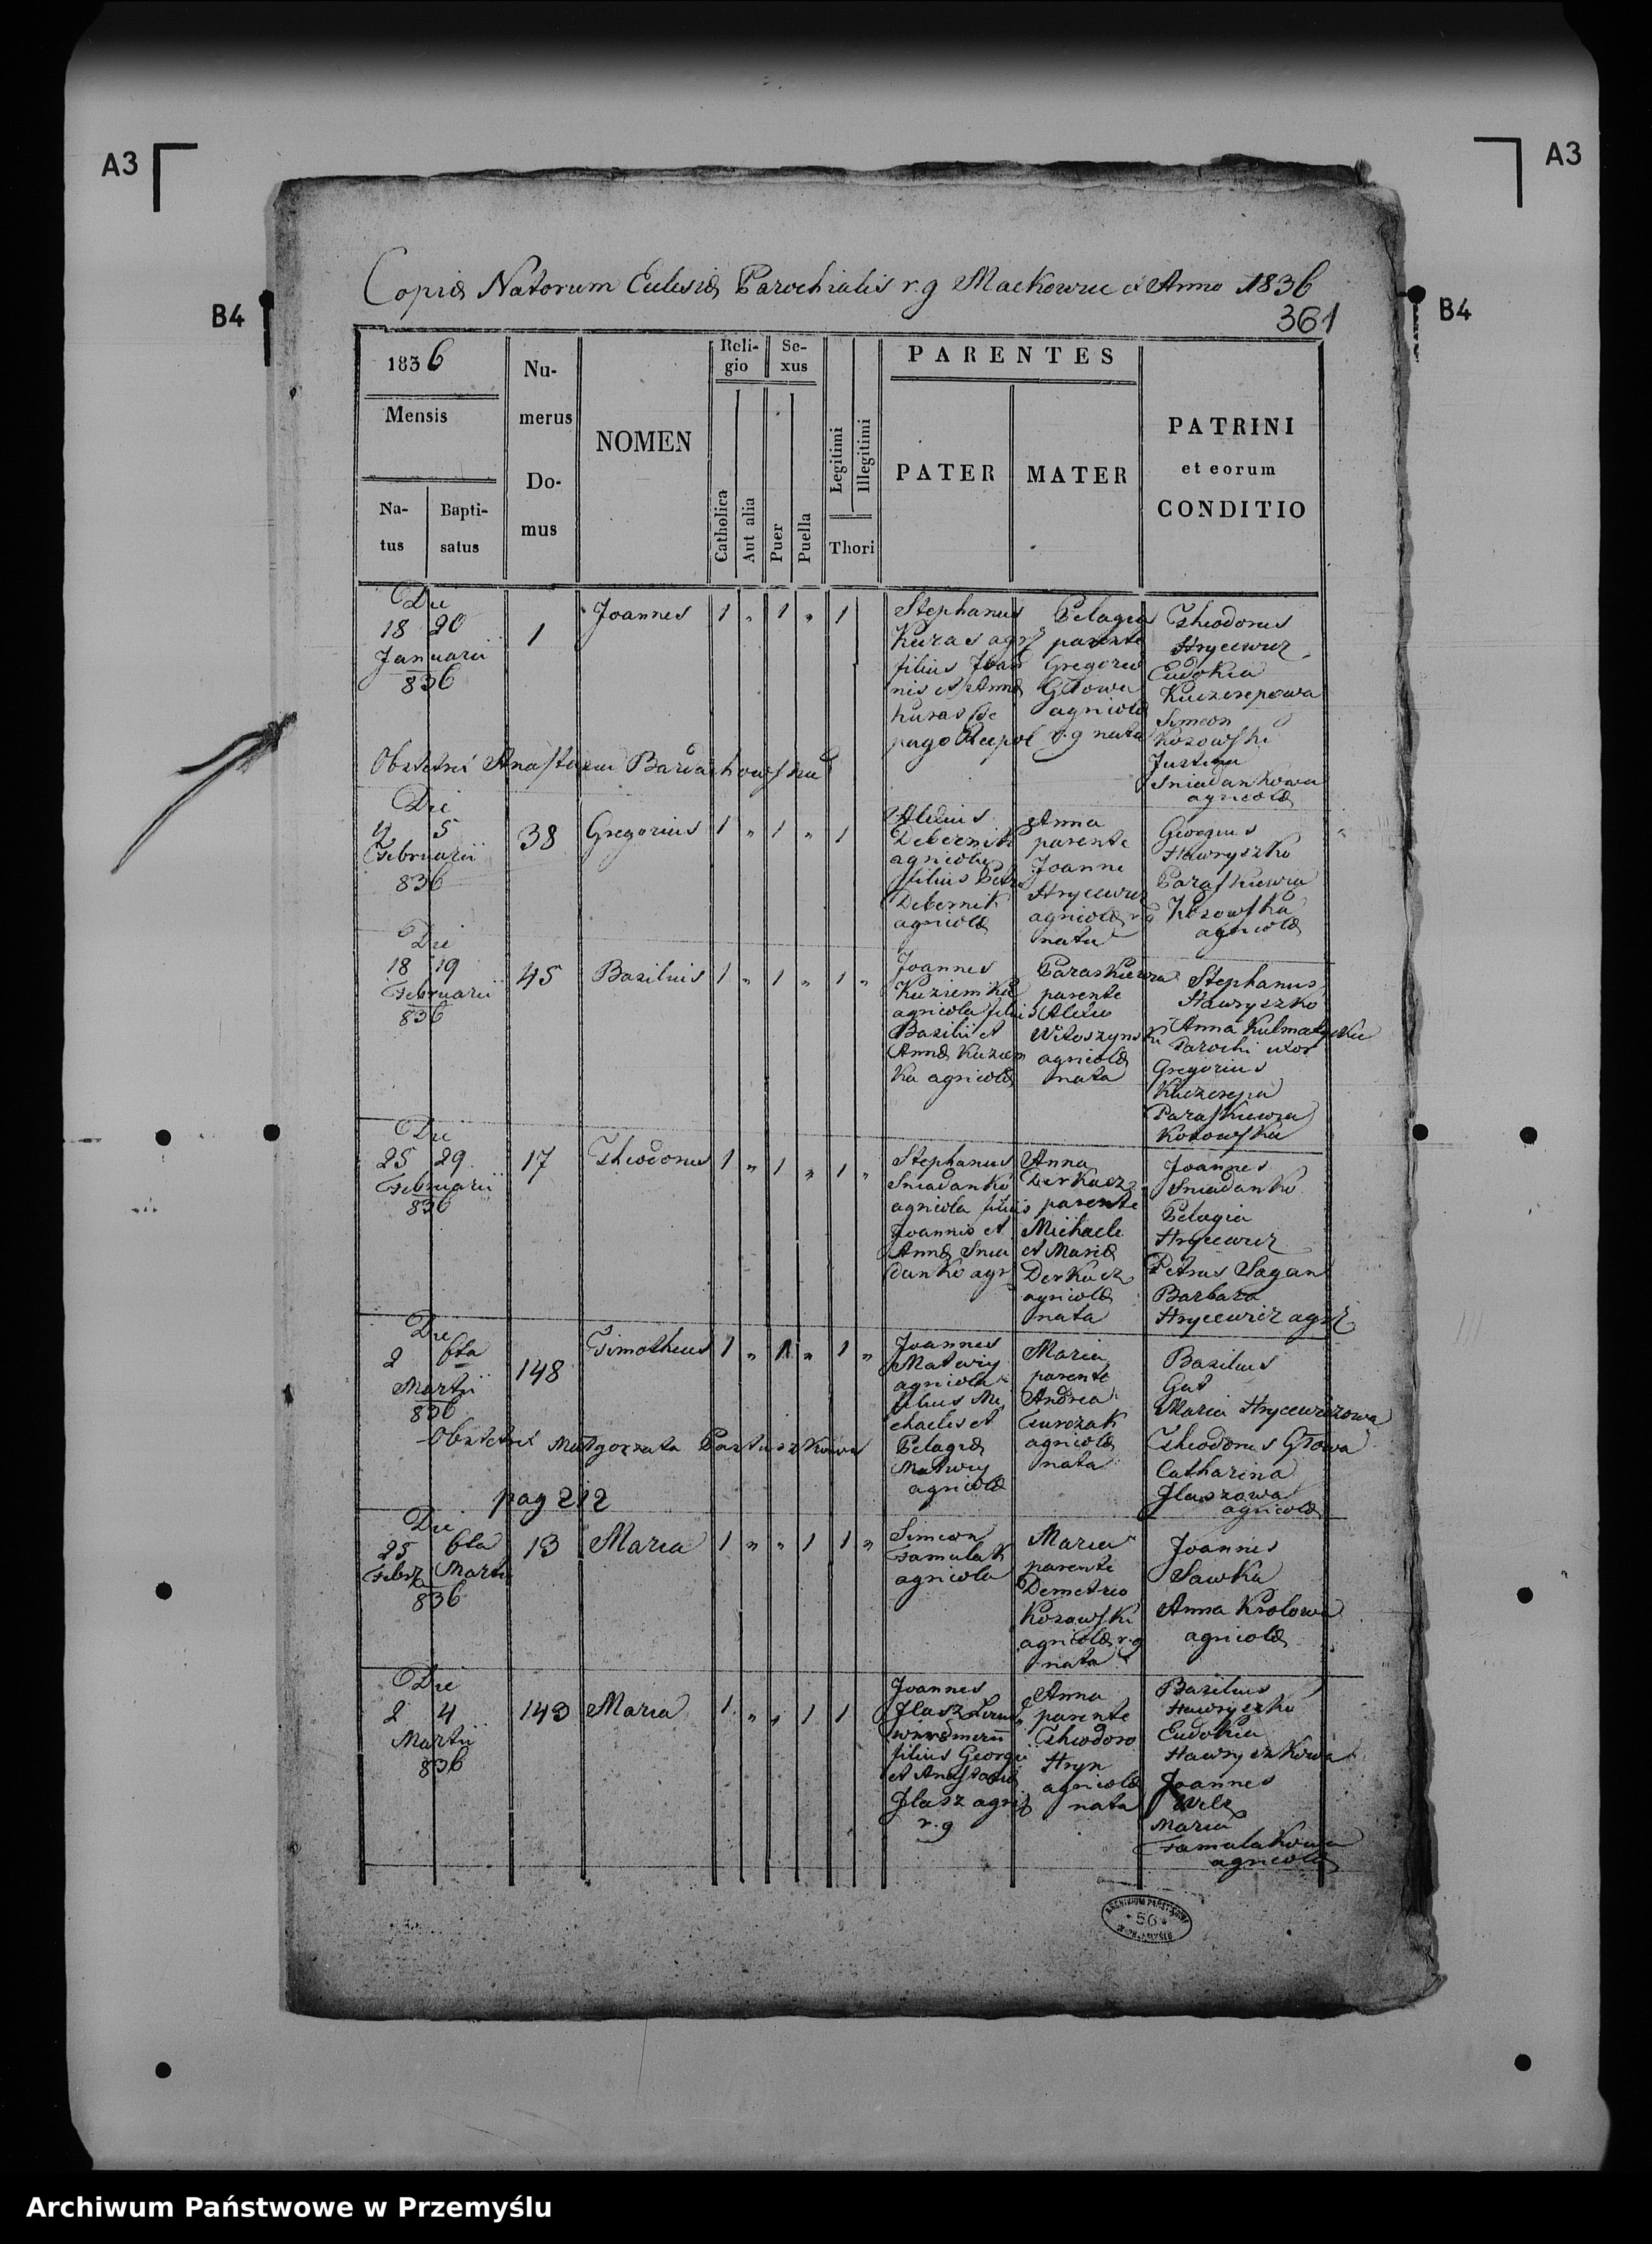 A3
A3
B4
B4
Copia Natorum Eclesia Parochialis r.g Mackowce ex Anno 1836
361
1836
Mensis
Na-
tus
Bapti-
satus
Nu-
merus
Do-
mus
NOMEN
Reli-
gio
Catholica
Aut alia
Se-
xus
Puer
Puella
Legitimi
Illegitimi
Thori
PARENTES
PATER
MATER
PATRINI
et eorum
CONDITIO
Die
18 20
Januarii
836
1
Joannes
1 „ 1 „ 1
Stephanus
Kuras agr
filius Joan
nis et Anna
Kuras de
pago Rzepol
Pelagia
parente
Gregorio
Głowa
agricola
r.g nata
Theodorus
Hrycewicz
Eudokia
Kuczerepowa
Simeon
Kozowski
Justina
Sniadankowa
agricola
Obstetrix Anastazia
Die
5
Februarii
836
38
Gregorius
1 „ 1 „ 1
Alexius
Debernik
agricola
filius Petri
Debernik
agricola
Anna
parente
Joanne
Hrycewicz
agricola r.g
nata
Georgius
Hawryszko
Paraskiewia
Kozowska
agricola
Die
18 19
Februarii
836
45
Basilius
1 „ 1 „ 1 „
Joannes
Kuziemka
agricola filius
Basilii et
Anna Kuziem
ka agricola
Paraskiewia
parente
Alexio
Witoszynski
agricola
nata
Stephanus
Hawryszko
Anna Kulmatycka
Parochi uxor
Gregorius
Kuczerepa
Paraskiewia
Kozowska
Die
25 29
Februarii
836
17
Theodorus
1 „ 1 „ 1 „
Stephanus
Sniadanko
agricola filius
Joannis et
Anna Snia
danko agr
Anna
Derkacz
parente
Michaele
et Maria
Derkacz
agricola
nata
Joannes
Sniadanko
Pelagia
Hrycewicz
Petrus Sagan
Barbara
Hrycewicz agr
Die
2 6ta
Martii
836
148
Timotheus
1 „ 1 „ 1 „
Joannes
Matwiy
agricola
filius Mi
chaelis et
Pelagia
Matwiy
agricola
Maria
parente
Andrea
agricola
nata
Basilius
Gut
Maria Hrycewiczowa
Theodorus Głowa
Catharina
Jlaszowa
agricola
Obstetrix Małgorzata
pag 212
Die
25 6ta
Febr Martii
836
13
Maria
1 „ „ 1 1 „
Simeon
Famulak
agricola
Maria
parente
Demetrio
Kozowski
agricola r.g
nata
Joannes
Sawka
Anna Krolowa
agricola
Die
2 4
Martii
836
143
Maria
1 „ „ 1 1
Joannes
Jlasz
filius Georgii
et Anastasia
Jlasz agr
r.g
Anna
parente
Theodoro
Hryn
agricola
nata
Basilius
Hawryszko
Eudokia
Hawryszkowa
Joannes
Welz
Maria
Famulakowa
agricola
56
Archiwum Państwowe w Przemyślu